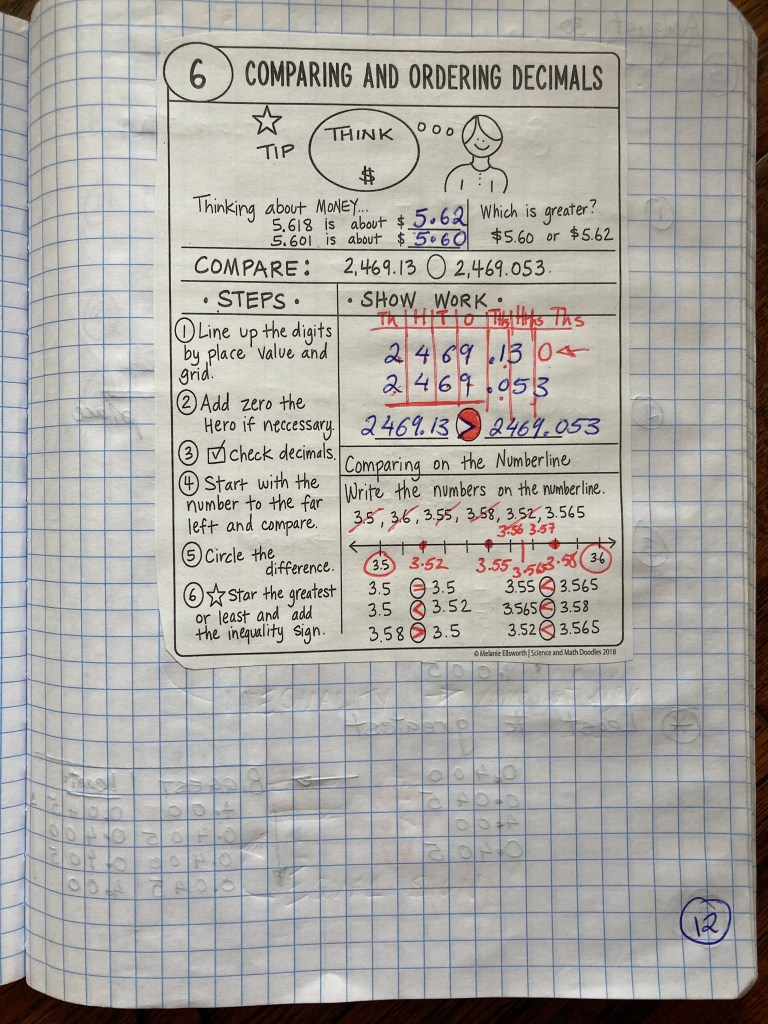 6 COMPARING AND ORDERING DECIMALS
TIP
THINK
$
Thinking about MONEY...
5.618 is about $ 5.62
5.601 is about $ 5.60
Which is greater?
$5.60 or $5.62
COMPARE: 2,469.13 2,469.053.
• STEPS •
① Line up the digits
by place value and
grid.
② Add zero the
Hero if neccessary.
③ ☑ Check decimals.
④ Start with the
number to the far
left and compare.
⑤ Circle the
difference.
⑥ ☆ Star the greatest
or least and add
the inequality sign.
• SHOW WORK •
Th H T O Ths Hths Ths
2 4 6 9 .1 3 0 ←
2 4 6 9 .0 5 3
2469.13 > 2469.053
Comparing on the Numberline
Write the numbers on the numberline.
3.5, 3.6, 3.55, 3.58, 3.52, 3.565
3.56 3.57
3.5 3.52 3.55 3.565 3.58 3.6
3.5 = 3.5 3.55 < 3.565
3.5 < 3.52 3.565 < 3.58
3.58 > 3.5 3.52 < 3.565
© Melanie Ellsworth | Science and Math Doodles 2018
12